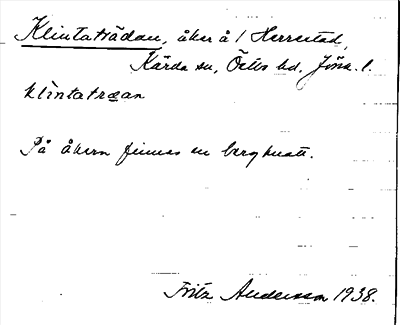 Klintaträdan, åker å 1 Herrestad,
Kärda sn, Östbo hd. Jönk. l.
klintatræan
På åkern finnes en bergknatt.
Fritz Andersson 1938.